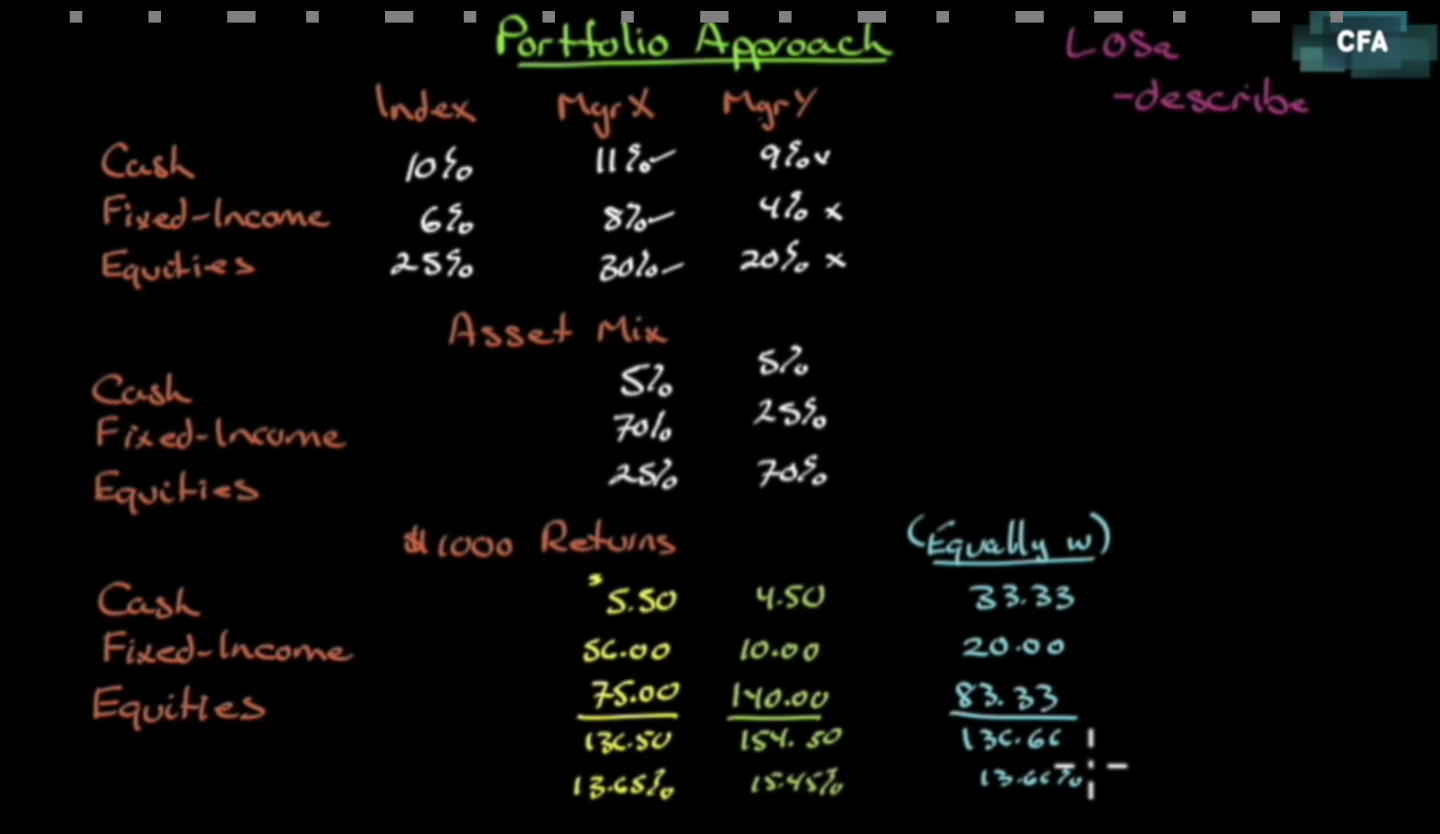 Portfolio Approach LOSa CFA
-describe
Index Mgr X Mgr Y
Cash 10% 11% 9%
Fixed-Income 6% 8% 4% x
Equities 25% 30% 20% x
Asset Mix
Cash 5% 5%
Fixed-Income 70% 25%
Equities 25% 70%
$1000 Returns (Equally w)
Cash $5.50 4.50 33.33
Fixed-Income 56.00 10.00 20.00
Equities 75.00 140.00 83.33
136.50 154.50 136.66
13.65% 15.45% 13.66%